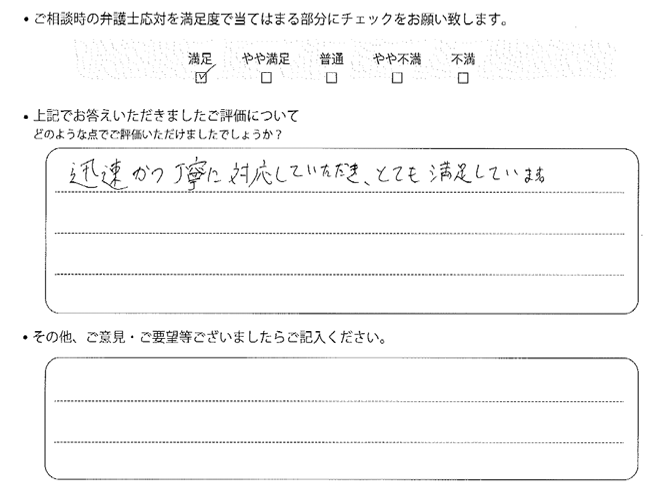 ・ご相談時の弁護士応対を満足度で当てはまる部分にチェックをお願い致します。
満足 やや満足 普通 やや不満 不満
・上記でお答えいただきましたご評価について
どのような点でご評価いただけましたでしょうか?
迅速かつ丁寧に対応していただき、とても満足しています
・その他、ご意見・ご要望等ございましたらご記入ください。